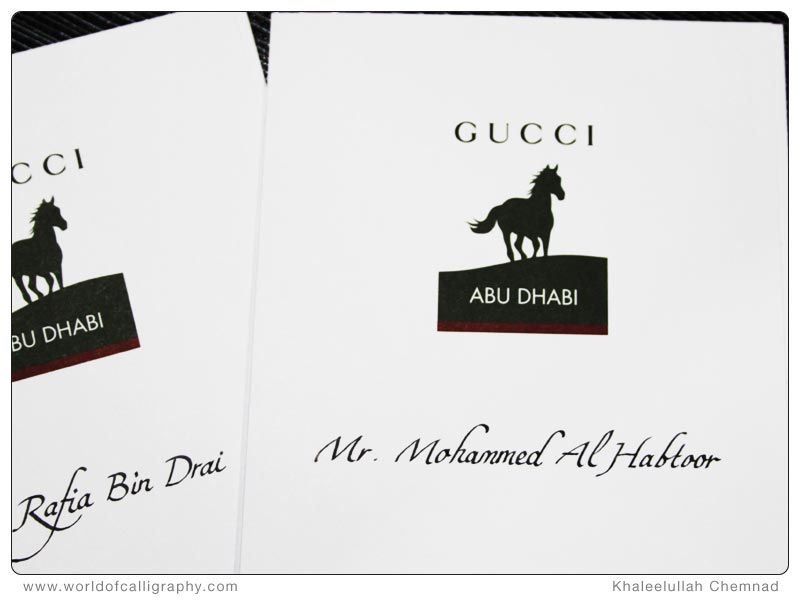 GUCCI
ABU DHABI
Rafia Bin Drai
GUCCI
ABU DHABI
Mr. Mohammed Al Habtoor
www.worldofcalligraphy.com
Khaleelullah Chemnad